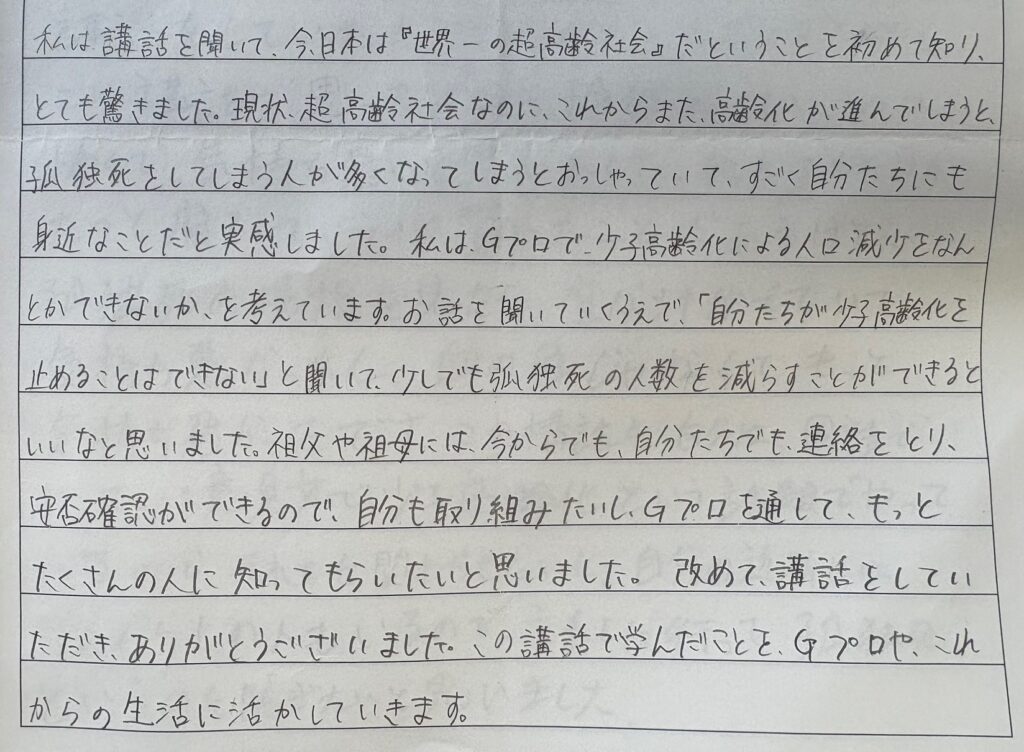 私は、講話を聞いて、今、日本は『世界一の超高齢社会』だということを初めて知り、
とても驚きました。現状、超高齢社会なのに、これからまた、高齢化が進んでしまうと、
孤独死をしてしまう人が多くなってしまうとおっしゃっていて、すごく自分たちにも
身近なことだと実感しました。私は、Gプロで、少子高齢化による人口減少をなん
とかできないか、を考えています。お話を聞いていくうえで、「自分たちが少子高齢化を
止めることはできない」と聞いて、少しでも孤独死の人数を減らすことができると
いいなと思いました。祖父や祖母には、今からでも、自分たちでも、連絡をとり、
安否確認ができるので、自分も取り組みたいし、Gプロを通して、もっと
たくさんの人に知ってもらいたいと思いました。改めて、講話をしてい
ただき、ありがとうございました。この講話で学んだことを、Gプロや、これ
からの生活に活かしていきます。